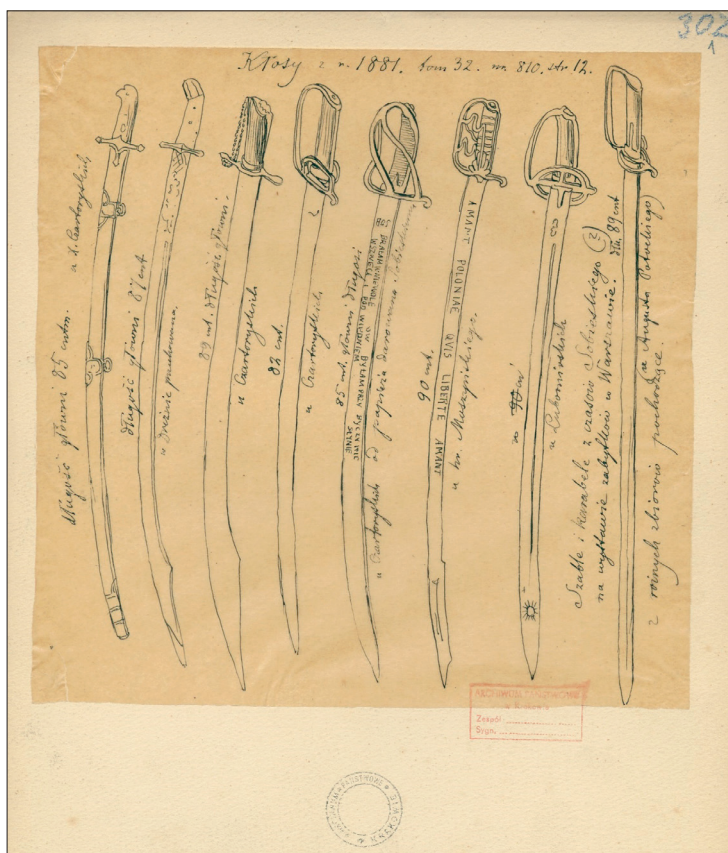 302
1
Kłosy z r. 1881. tom 32. nr. 810. str. 12.
długość głowni 85 cntm. u X. Czartoryskich
długość głowni 87 cnt
89 cnt. długość głowni.
u Czartoryskich
82 cnt.
u Czartoryskich
85 cnt. głowni długości
u Czartoryskich od papieża darowana Sobieskiemu
AMANT POLONIAE QVIS LIBERTE AMANT
90 cnt.
u hr. Moszyńskiego.
u Lubomirskich
Szable i karabele z czasów Sobieskiego (?)
na wystawie zabytków w Warszawie.
dłu. 89 cnt
(u Augusta Potockiego)
z różnych zbiorów pochodzące.
ARCHIWUM PAŃSTWOWE
w Krakowie
Zespół
Sygn.
ARCHIWUM PAŃSTWOWE * W KRAKOWIE *